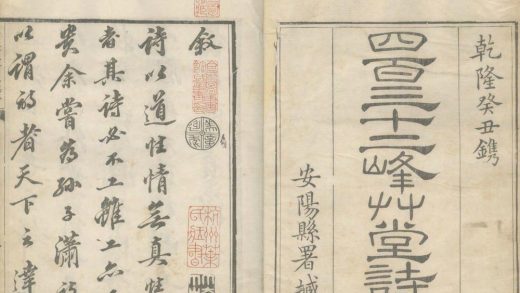 乾隆癸丑鐫
四百三十二峰艸堂詩
安陽縣署藏
叙
詩以道性情無真性
者其詩必不工雖工亦不
貴余嘗為孫子瀟詩
以謂詩者天下之達